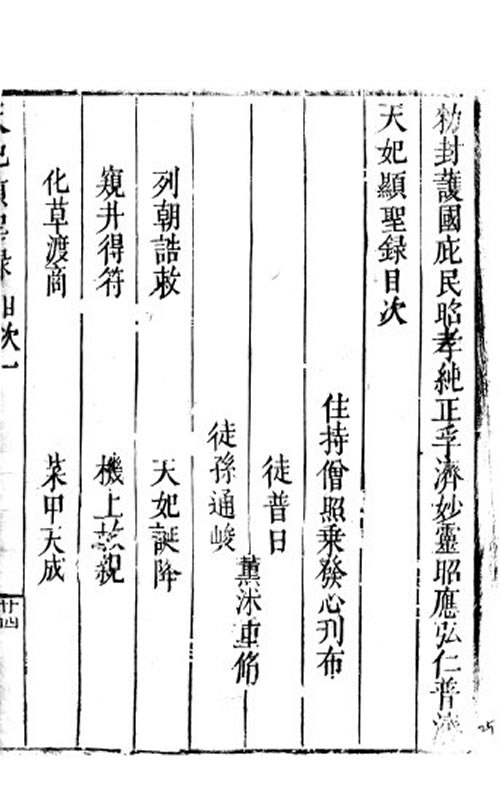 勑封護國庇民昭孝純正孚濟妙靈昭應弘仁普濟
天妃顯聖録目次
住持僧照乘發心刋布
徒普日
薰沐重修
徒孫通峻
列朝誥敕 天妃誕降
窺井得符 機上救親
化草渡商 菜甲天成
天妃顯聖録 目次一
廿四
25